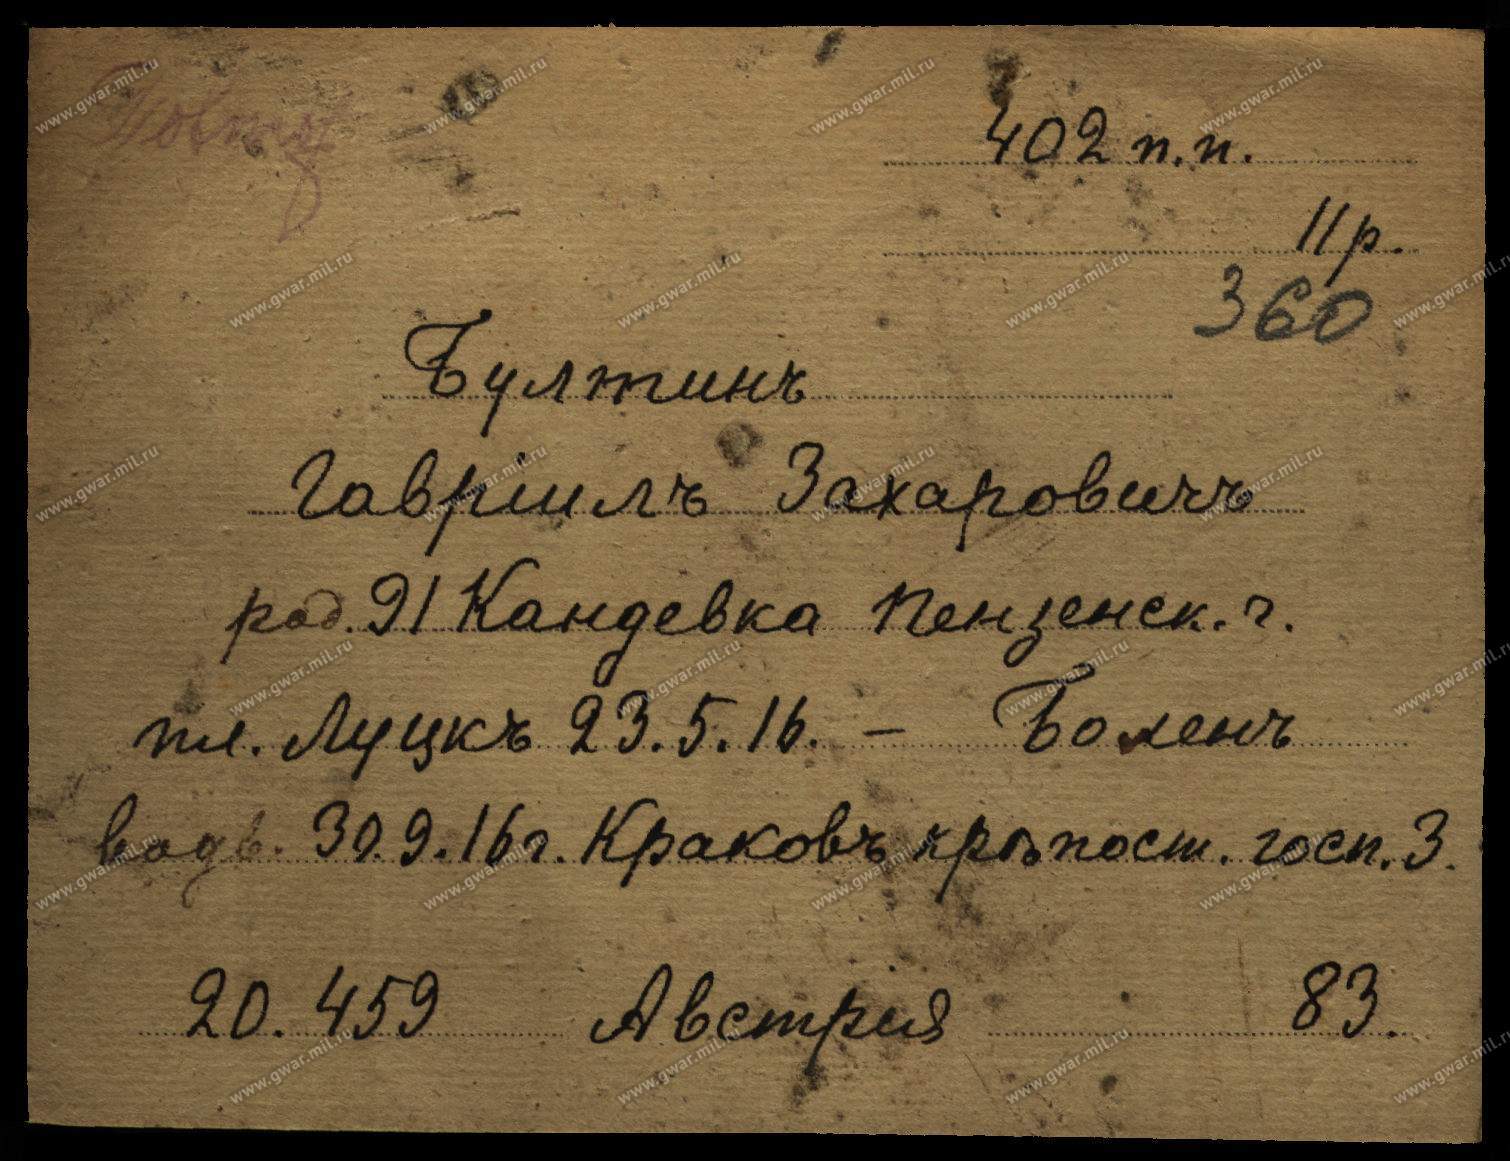 402 п.п.
11 р.
360
Булткинъ
Гавріилъ Захаровичъ
род. 91 Кандевка Пензенск. г.
пл. Луцкъ 23.5.16. – Боленъ
водв. 30.9.16 г. Краковъ крѣпост. госп. 3.
20.459 Австрия 83.
www.gwar.mil.ru